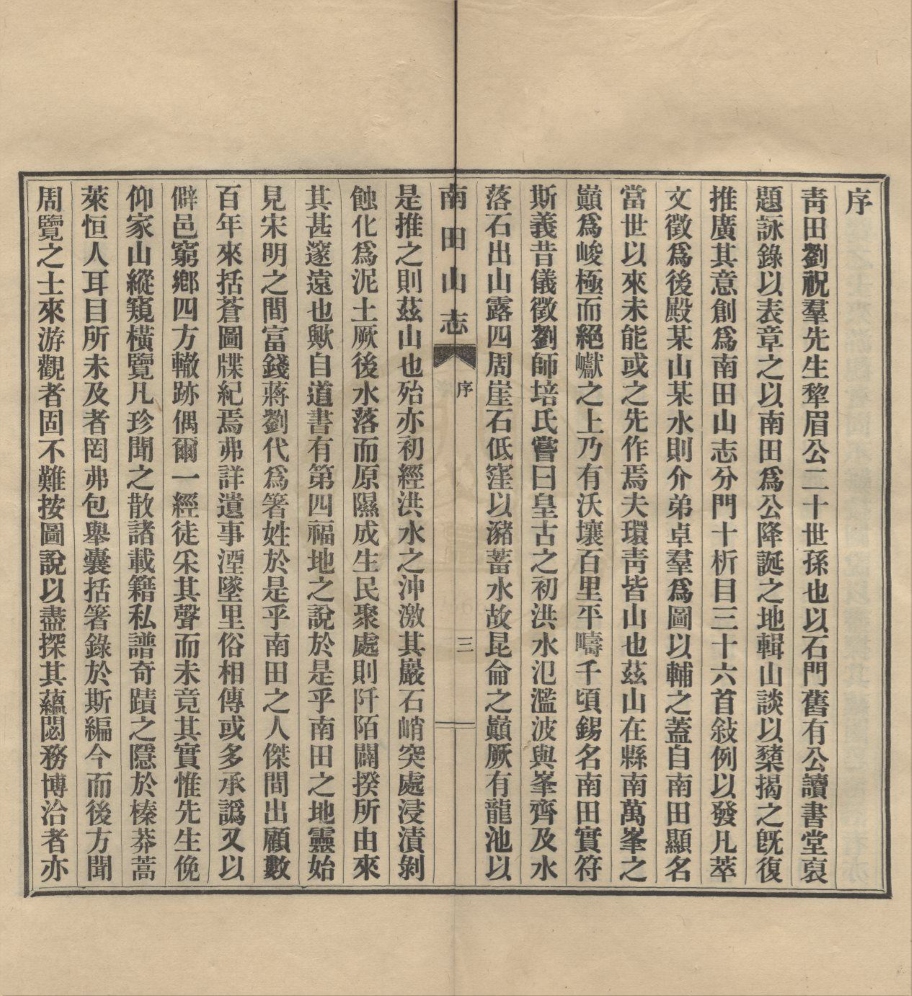 序
靑田劉祝羣先生犂眉公二十世孫也以石門舊有公讀書堂裒
題詠錄以表章之以南田爲公降誕之地輯山談以櫫揭之旣復
推廣其意創爲南田山志分門十析目三十六首敍例以發凡萃
文徵爲後殿某山某水則介弟卓羣爲圖以輔之蓋自南田顯名
當世以來未能或之先作焉夫環靑皆山也茲山在縣南萬峯之
巓爲峻極而絕巘之上乃有沃壤百里平疇千頃錫名南田實符
斯義昔儀徵劉師培氏嘗曰皇古之初洪水氾濫波與峯齊及水
落石出山露四周崖石低窪以瀦蓄水故昆侖之巓厥有龍池以
南田山志
序
三
是推之則茲山也殆亦初經洪水之沖激其巖石峭突處浸漬剝
蝕化爲泥土厥後水落而原隰成生民聚處則阡陌闢揆所由來
其甚邃遠也歟自道書有第四福地之說於是乎南田之地靈始
見宋明之間富錢蔣劉代爲箸姓於是乎南田之人傑間出顧數
百年來括蒼圖牒紀焉弗詳遺事湮墜里俗相傳或多承譌又以
僻邑窮鄕四方轍跡偶爾一經徒采其聲而未竟其實惟先生俛
仰家山縱窺橫覽凡珍聞之散諸載籍私譜奇蹟之隱於榛莽蒿
萊恒人耳目所未及者罔弗包舉囊括箸錄於斯編今而後方聞
周覽之士來游觀者固不難按圖說以盡探其蘊閟務博洽者亦